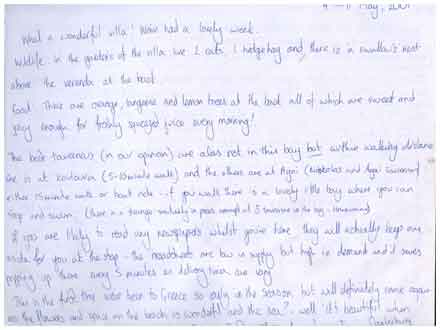 4 - 11 May, 2001
What a wonderful villa! We've had a lovely week.
Wildlife: in the gardens of the villa are 2 cats, 1 hedgehog and there is a swallow's nest
above the veranda at the back.
Food: There are orange, tangerine and lemon trees at the back all of which are sweet and
juicy enough for freshly squeezed juice every morning!
The best tavernas (in our opinion) are alas not in this bay but within walking distance
One is at (5-10 minute walk) and the others are at Agni
either 15 minute walk or boat ride - if you walk there is a lovely little bay where you can
stop and swim. (there is a
If you are likely to read any newspapers whilst you're here they will actually keep one
aside for you at the shop - the newspapers are low in supply but high in demand and it saves
popping up there every 5 minutes as delivery times are vary
This is the first time we've been to Greece so early in the season but will definitely come again
as the flowers and space on the beach is wonderful and the sea? well 'it's beautiful when